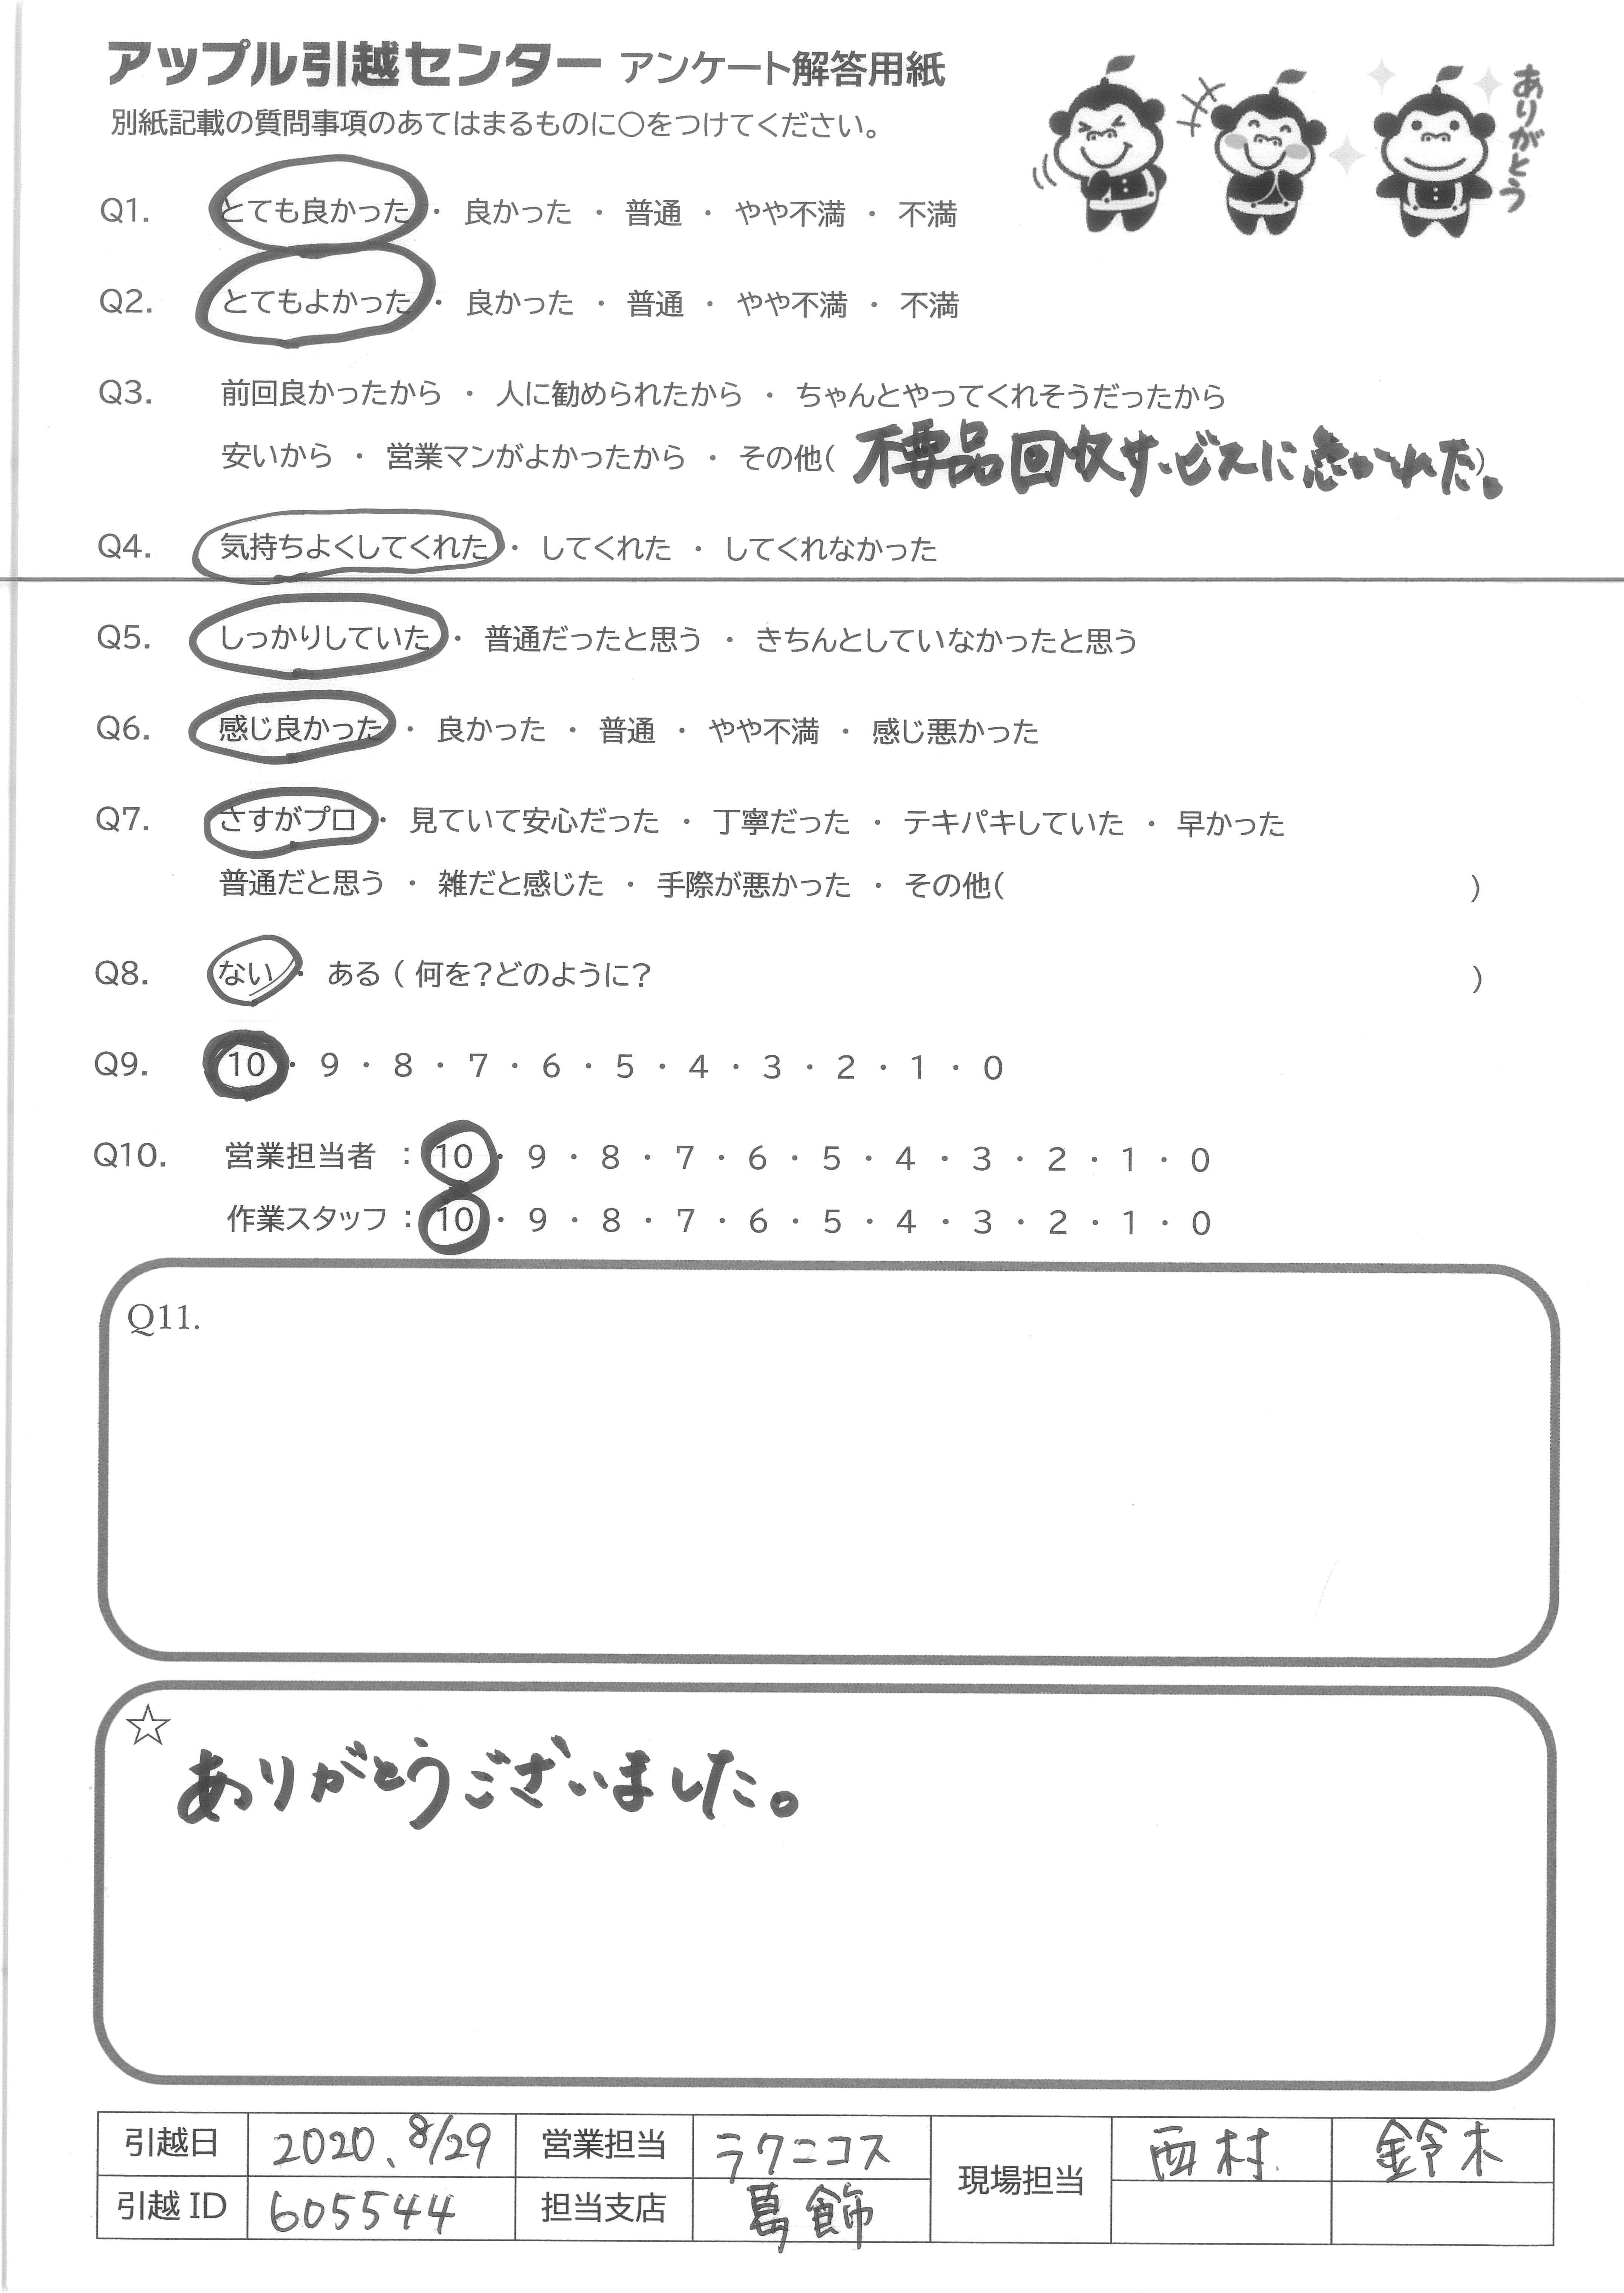 アップル引越センター アンケート解答用紙
ありがとう
別紙記載の質問事項のあてはまるものに○をつけてください。
Q1. とても良かった ・ 良かった ・ 普通 ・ やや不満 ・ 不満
Q2. とてもよかった ・ 良かった ・ 普通 ・ やや不満 ・ 不満
Q3. 前回良かったから ・ 人に勧められたから ・ ちゃんとやってくれそうだったから
安いから ・ 営業マンがよかったから ・ その他( 不要品回収サービスに惹かれた。)
Q4. 気持ちよくしてくれた ・ してくれた ・ してくれなかった
Q5. しっかりしていた ・ 普通だったと思う ・ きちんとしていなかったと思う
Q6. 感じ良かった ・ 良かった ・ 普通 ・ やや不満 ・ 感じ悪かった
Q7. さすがプロ ・ 見ていて安心だった ・ 丁寧だった ・ テキパキしていた ・ 早かった
普通だと思う ・ 雑だと感じた ・ 手際が悪かった ・ その他( )
Q8. ない ・ ある ( 何を?どのように? )
Q9. 10 ・ 9 ・ 8 ・ 7 ・ 6 ・ 5 ・ 4 ・ 3 ・ 2 ・ 1 ・ 0
Q10. 営業担当者 : 10 ・ 9 ・ 8 ・ 7 ・ 6 ・ 5 ・ 4 ・ 3 ・ 2 ・ 1 ・ 0
作業スタッフ : 10 ・ 9 ・ 8 ・ 7 ・ 6 ・ 5 ・ 4 ・ 3 ・ 2 ・ 1 ・ 0
Q11.
☆
ありがとうございました。
引越日 2020、8/29 営業担当 ラクニコス 現場担当 西村 鈴木
引越 ID 605544 担当支店 葛飾